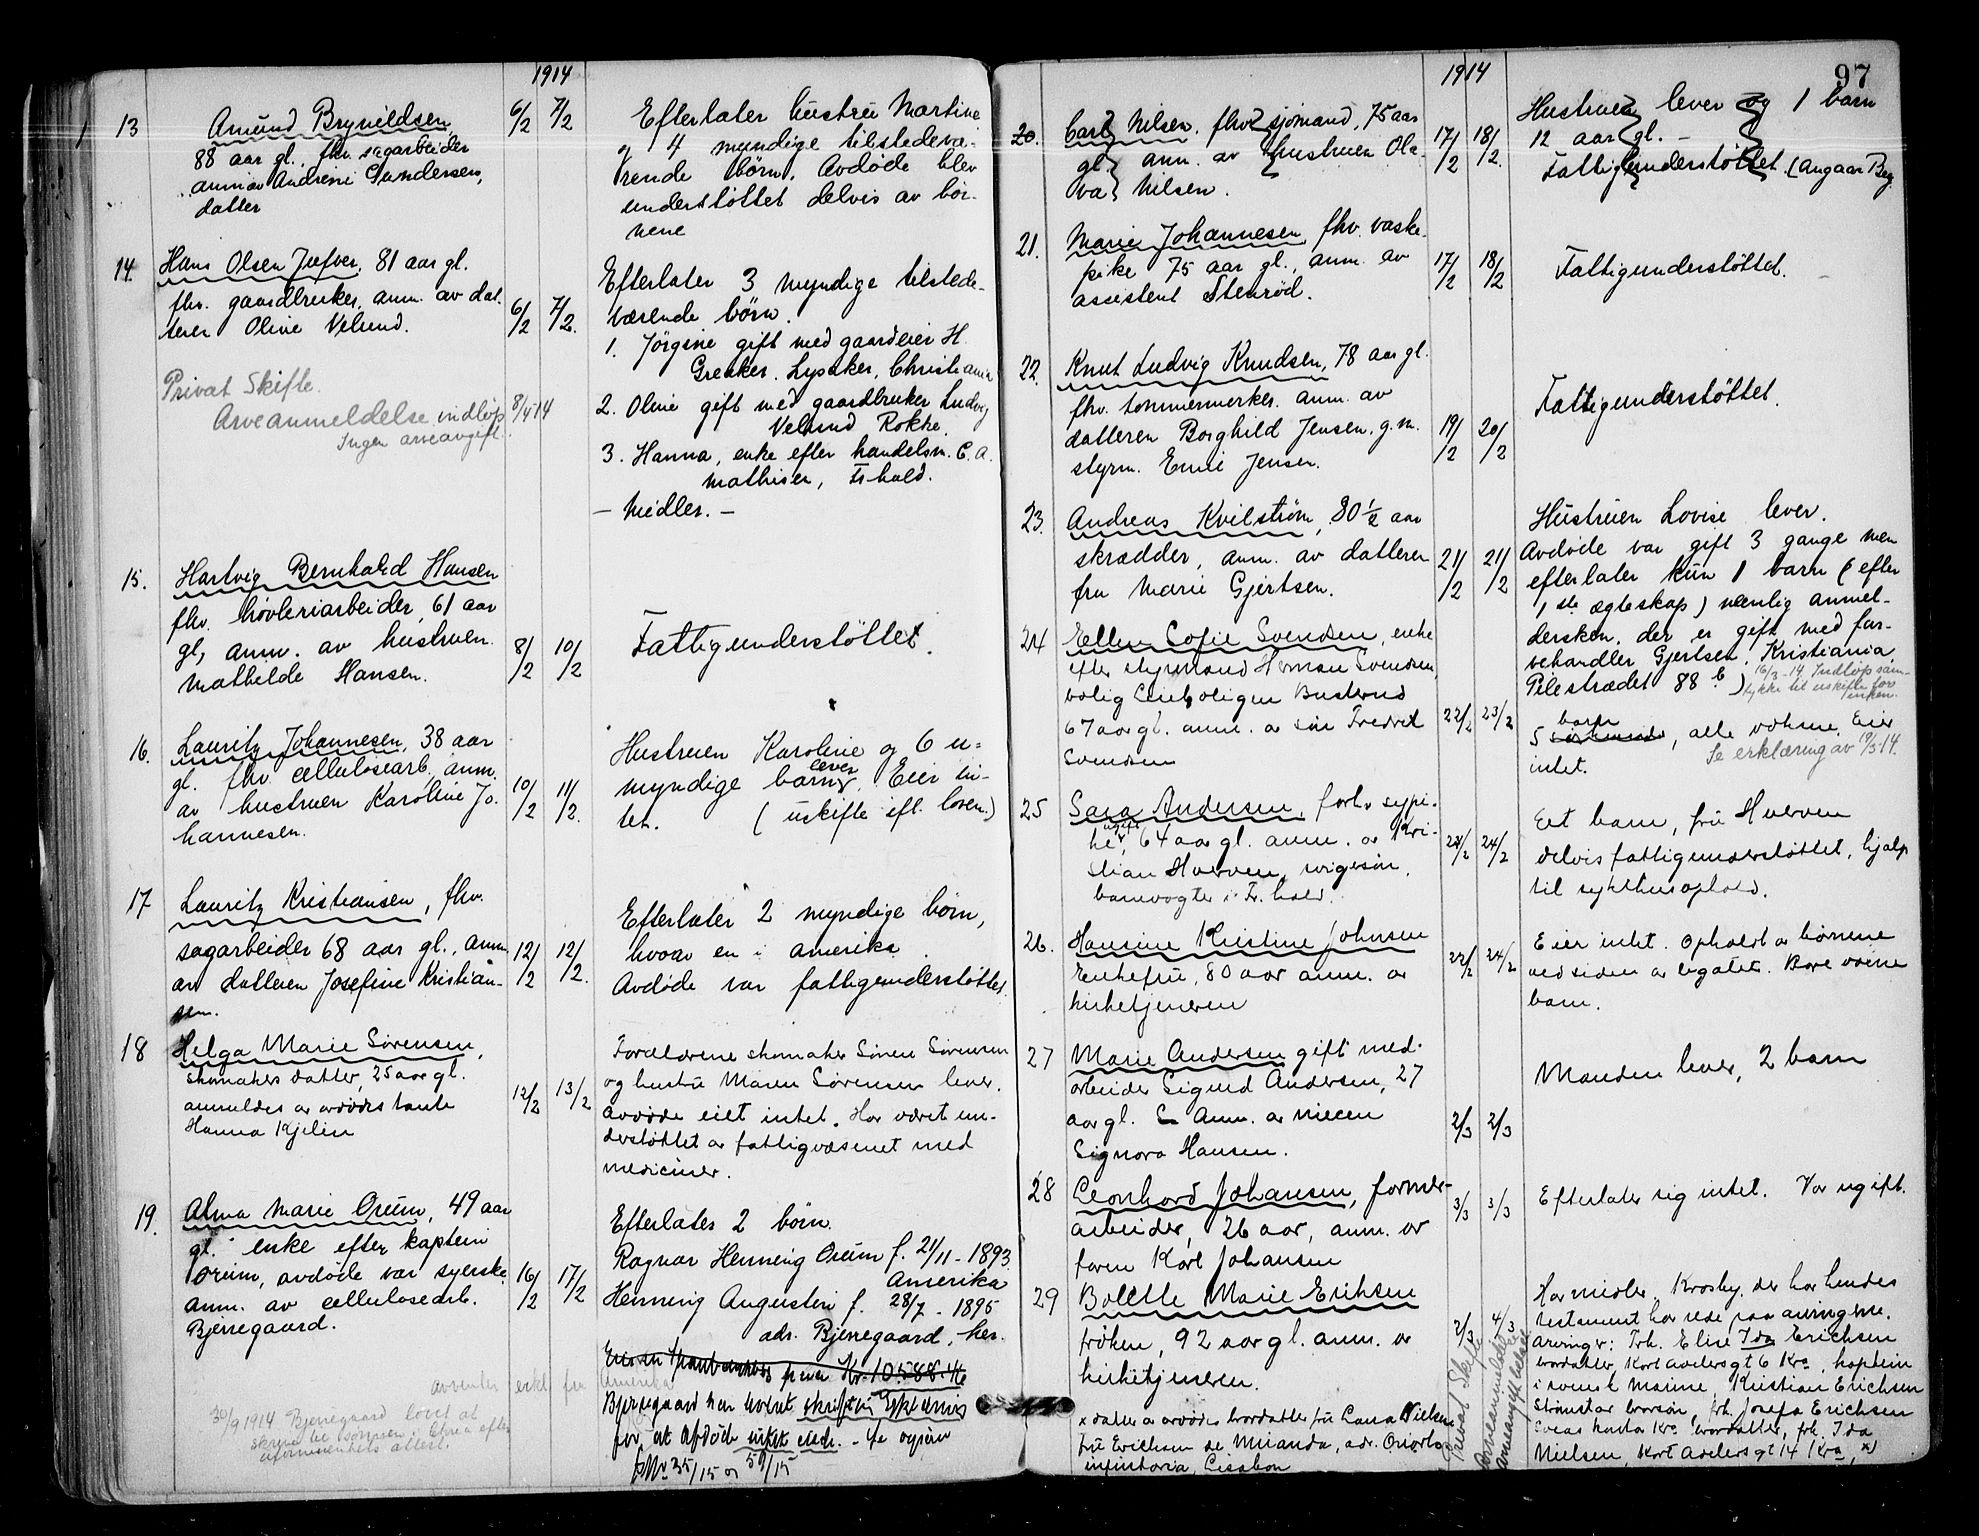 1914
13 Amund Brynildsen 6/2 7/2
88 aar gl. fhv. sagarbeider
anm. av Andrene Gundersen,
datter
Efterlater hustru Martine
og 4 myndige tilstedevæ-
rende børn. Avdøde blev
understøttet delvis av bør-
nene
14. Hans Olsen Jufver, 81 aar gl.
fhv. gaardbruker, anm. av dat-
teren Oline Velund. 6/2 7/2.
Privat Skifte.
Arveanmeldelse indløp 8/4 14
Ingen arveavgift.
Efterlater 3 myndige tilstede-
værende børn.
1. Jørgine gift med gaardeier H.
Greaker. Lysaker, Christiania
2. Oline gift med gaardbruker Ludvig
Velund Rokke.
3. Hanna, enke efter handelsm. C. A.
Mathisen, Fr.hald.
- Midler. -
15. Hartvig Bernhard Hansen
fhv. høvleriarbeider, 61 aar
gl, anm. av hustruen 8/2 10/2
Mathilde Hansen.
Fattigunderstøttet.
16. Lauritz Johannesen, 38 aar
gl. fhv cellulosearb. anm.
av hustruen Karoline Jo- 10/2 11/2.
hannesen.
Hustruen Karoline og 6 u-
myndige barn lever. Eier in-
tet. (uskifte eft. loven.)
17 Lauritz Kristiansen, fhv.
sagarbeider 68 aar gl., anm. 12/2 12/2.
av datteren Josefine Kristian-
sen.
Efterlater 2 myndige børn,
hvorav en i Amerika.
Avdøde var fattigunderstøttet.
18 Helga Marie Sørensen,
skomakers datter, 25 aar gl.
anmeldes av avdødes tante 12/2 13/2
Hanna Kjelin
Forældrene skomaker Søren Sørensen
og hustru Maren Sørensen lever.
Avdøde eiet intet. Har været un-
derstøttet av fattigvæsenet med
mediciner.
19. Alma Marie Orum, 49 aar
gl. enke efter kaptein
Orum, avdøde var syerske 16/2 17/2
anm. av cellulosearb.
Bjerregaard.
Efterlates 2 børn.
Ragnar Henning Orum f. 21/11 - 1893.
Amerika
Henning Augustin f. 28/7 - 1895
adr. Bjerregaard, her.
Kr. 10588.46
Amerika
Bjerregaard har levert skriftlig
for at Afdøde intet eiede. - Se ogsaa
P.Nr 35/15 og 59/15
30/9 1914 Bjerregaard lovet at
skrive til sønnen i Amerika efter
uformuenhets attest.
97
1914
20. Carl Nilsen. fhv sjømand, 75 aar
gl. anm. av hustruen Ola- 17/2 18/2.
va Nilsen.
Hustruen lever og 1 barn
12 aar gl. -
Fattigunderstøttet. (angaar Beg.
21. Marie Johannesen fhv. vaske-
pike 75 aar gl., anm. av 17/2 18/2
assistent Stenrød.
Fattigunderstøttet.
22. Knut Ludvig Knudsen, 78 aar gl.
fhv. tømmermerker. anm. av
datteren Borghild Jensen, g. m. 19/2 20/2
styrm. Emil Jensen.
Fattigunderstøttet.
23. Andreas Kvilstrøm, 80 1/2 aar
skrædder, anm. av datteren 21/2 21/2
fru Marie Gjertsen.
Hustruen Lovise lever.
Avdøde var gift 3 gange men
efterlater kun 1 barn (efter
1ste ægteskap) nemlig anmel-
dersken, der er gift med far-
vehandler Gjertsen, Kristiania,
Pilestrædet 88 b)
16/3-14 Indløp sam-
tykke til uskifte for
enken.
24 Ellen Sofie Svendsen, enke
efter styrmand Herman Svendsen,
bolig Leieboligen Busterud
67 aar gl. anm. av søn Fredrik 22/2 23/2
Svendsen
5 barn, alle voksne. Eier
intet. Se erklæring av 19/3-14.
25 Sara Andersen, forhv sypi-
ke, ugift, 64 aar gl. anm. av Kri- 23/2 24/2
stian Hverven, svigersøn,
banevogter i Fr. hald.
Eet barn, fru Hverven
delvis fattigunderstøttet, hjælp
til sykehusophold.
26. Hansine Kristine Johnsen
Enkefru, 80 aar anm. av 22/2 24/2
kirketjeneren
Eier intet. Opholdt av børnene
ved siden av legatet. Bare voksne
barn.
27 Marie Andersen gift med
arbeider Sigurd Andersen, 27
aar gl. Anm. av niecen 2/3 2/3
Signora Hansen.
Manden lever, 2 barn
28 Leonhard Johansen, former-
arbeider, 26 aar, anm. av 3/3 3/3
faren Karl Johansen
Efterlater sig intet. Var ugift.
29 Bolette Marie Erichsen
frøken, 92 aar gl. anm. av 2/3 4/3
kirketjeneren.
Privat Skifte
Arveanmeldelse
Har midler. Krosby, der har hendes
testament har rede paa arvingerne.
Arvinger: Frk. Elise Ida Erichsen
brordatter, Kort Adelersgt 6 Kra, kaptein
i svensk Marine, Kristian Erichsen
brorsøn, frk. Josefa Erichsen
Kra brordatter, frk. Ida
Nielsen, Kort Adelersgt 14 Kra, x)
x datter av avdødes brordatter fru Laura Nielsen
fru Erichsen de Miranda, adr.
Lissabon